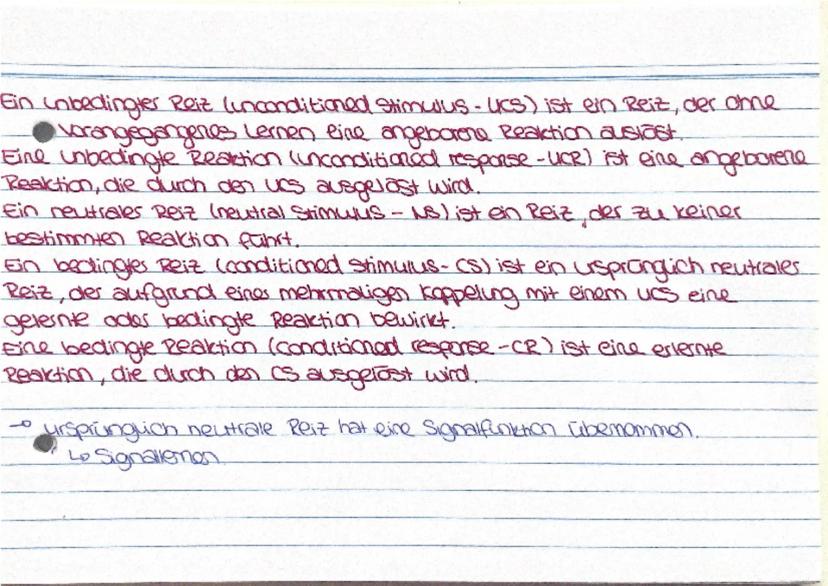 Ein unbedingter Reiz (unconditioned stimulus - UCS) ist ein Reiz, der ohne
vorangegangenes Lernen eine angeborene Reaktion auslöst.
Eine unbedingte Reaktion (unconditioned response - UCR) ist eine angeborene
Reaktion, die durch den UCS ausgelöst wird.
Ein neutraler Reiz (neutral stimulus - NS) ist ein Reiz, der zu keiner
bestimmten Reaktion führt.
Ein bedingter Reiz (conditioned stimulus - CS) ist ein ursprünglich neutraler
Reiz, der aufgrund einer mehrmaligen Koppelung mit einem UCS eine
gelernte oder bedingte Reaktion bewirkt.
Eine bedingte Reaktion (conditioned response - CR) ist eine erlernte
Reaktion, die durch den CS ausgelöst wird.
→ ursprünglich neutrale Reiz hat eine Signalfunktion übernommen.
↳ Signallernen